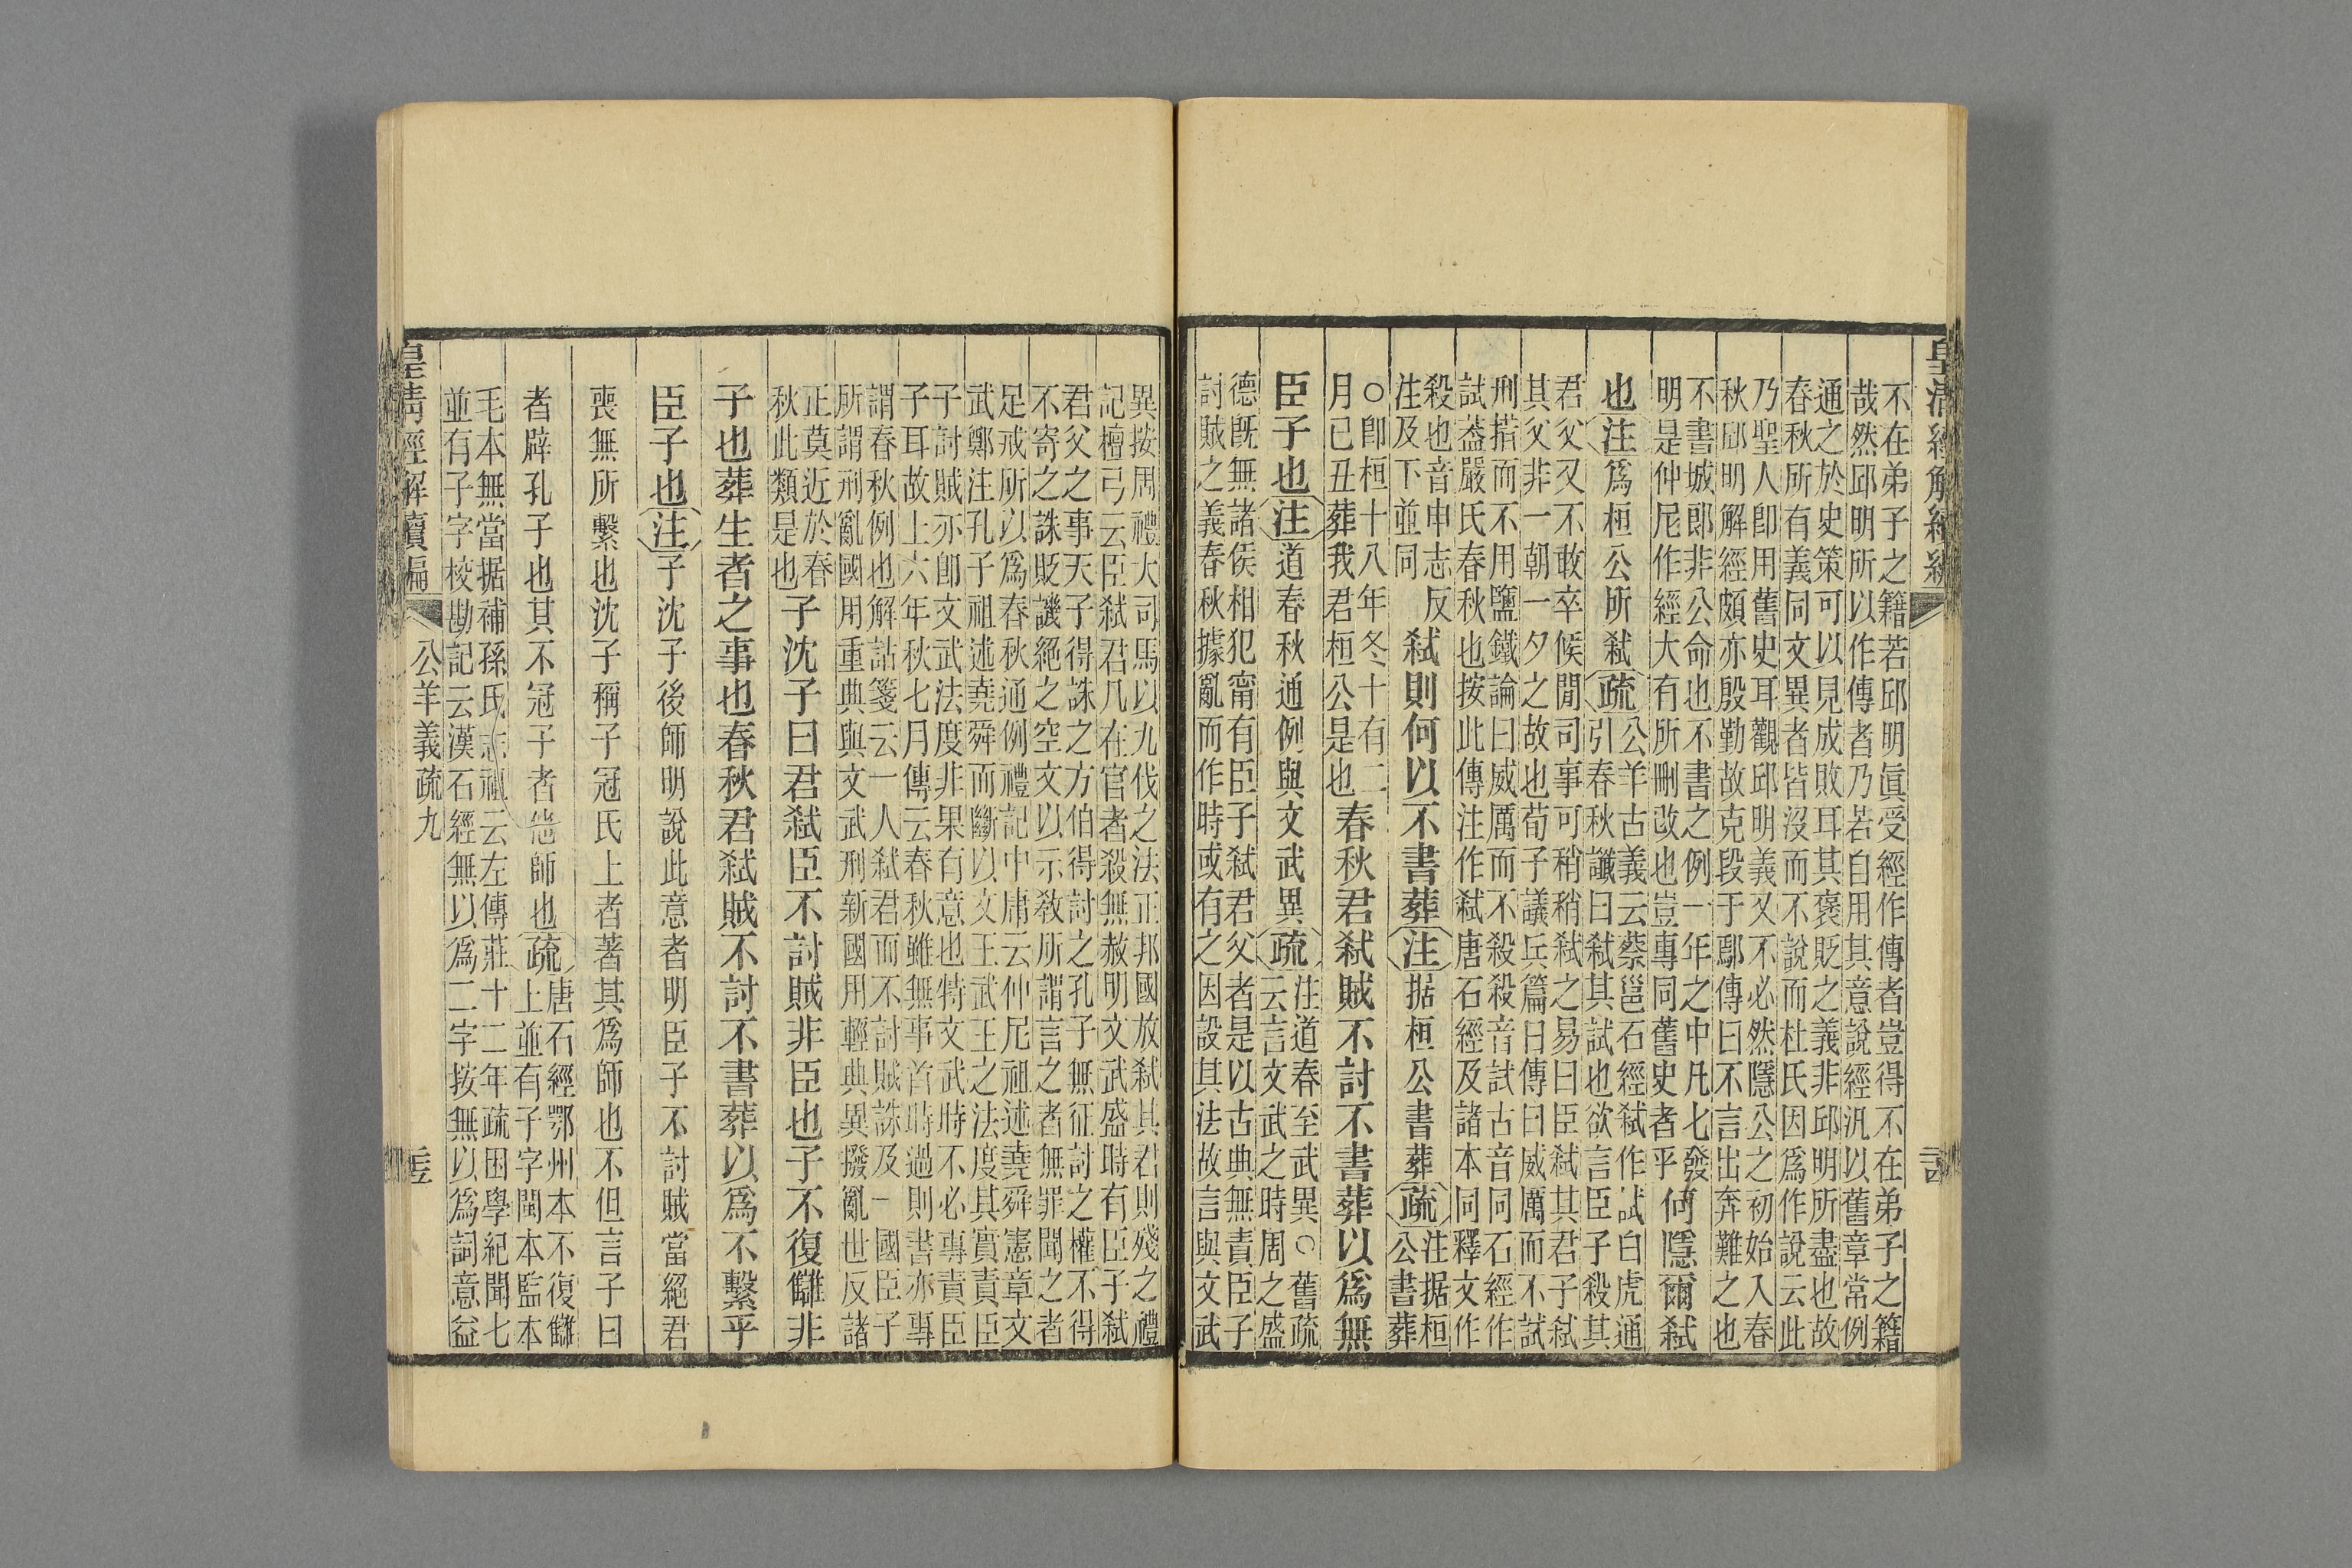 不在弟子之籍若邱明眞受經作傳者豈得不在弟子之籍
哉然邱明所以作傳者乃若自用其意說經汎以舊章常例
通之於史策可以見成敗耳其褒貶之義非邱明所盡也故
春秋所有義同文異者皆沒而不說而杜氏因爲作說云此
乃聖人卽用舊史耳觀邱明義又不必然隱公之初始入春
秋邱明解經頗亦殷勤故克段于鄢傳曰不言出奔難之也
不書城郎非公命也不書之例一年之中凡七發
明是仲尼作經大有所刪改也豈專同舊史者乎
何隱爾弒
也注爲桓公所弒疏
公羊古義云蔡邕石經弒作試白虎通
引春秋讖曰弒其試也欲言臣子殺其
君父又不敢卒候閒司事可稍稍弒之易曰臣弒其君子弒
其父非一朝一夕之故也荀子議兵篇曰傳曰威厲而不試
刑措而不用鹽鐵論曰威厲而不殺殺音試古音同石經作
試葢嚴氏春秋也按此傳注作弒唐石經及諸本同釋文作
殺也音申志反
注及下並同
弒則何以不書葬注据桓公書葬疏
注据桓
公書葬
○卽桓十八年冬十有二
月已丑葬我君桓公是也
春秋君弒賊不討不書葬以爲無
臣子也注道春秋通例與文武異疏
注道春至武異○舊疏
云言文武之時周之盛
德旣無諸侯相犯甯有臣子弒君父者是以古典無責臣子
討賊之義春秋據亂而作時或有之因設其法故言與文武
異按周禮大司馬以九伐之法正邦國放弒其君則殘之禮
記檀弓云臣弒君凡在官者殺無赦明文武盛時有臣子弒
君父之事天子得誅之方伯得討之孔子無征討之權不得
不寄之誅貶譏絕之空文以示敎所謂言之者無罪聞之者
足戒所以爲春秋通例禮記中庸云仲尼祖述堯舜憲章文
武鄭注孔子祖述堯舜而斷以文王武王之法度其實責臣
子討賊亦卽文武法度非果有意也特文武時不必專責臣
子耳故上六年秋七月傳云春秋雖無事首時過則書亦事
謂春秋例也解詁箋云一人弒君而不討賊誅及一國臣子
所謂刑亂國用重典與文武刑新國用輕典異撥亂世反諸
正莫近於春
秋此類是也
子沈子曰君弒臣不討賊非臣也子不復讎非
子也葬生者之事也春秋君弒賊不討不書葬以爲不繫乎
臣子也注子沈子後師明說此意者明臣子不討賊當絕君
喪無所繫也沈子稱子冠氏上者著其爲師也不但言子曰
者辟孔子也其不冠子者他師也疏
唐石經鄂州本不復讎
上並有子字閩本監本
毛本無當据補孫氏志祖云左傳莊十二年疏困學紀聞七
並有子字校勘記云漢石經無以爲二字按無以爲詞意益
公羊義疏九